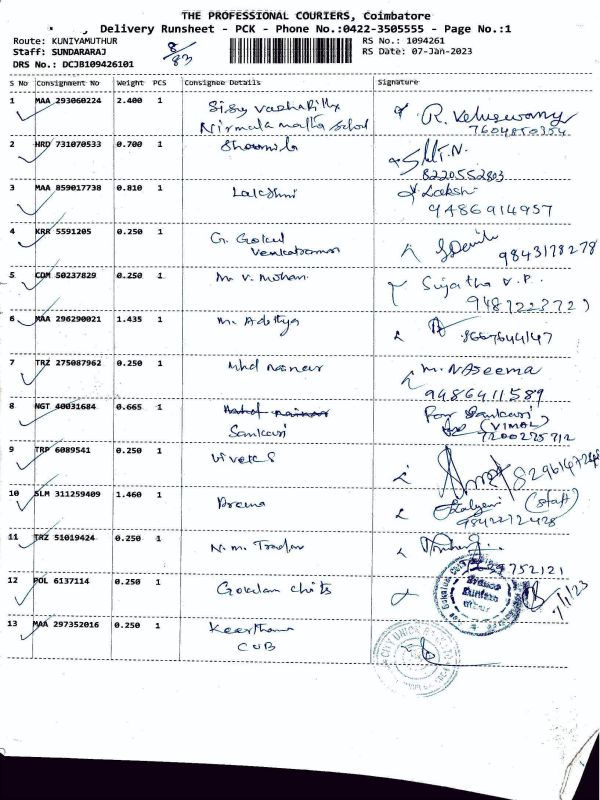 THE PROFESSIONAL COURIERS, Coimbatore
Delivery Runsheet - PCK - Phone No.:0422-3505555 - Page No.:1
Route: KUNIYAMUTHUR
Staff: SUNDARARAJ
DRS No.: DCJB109426101
8/83
RS No.: 1094261
RS Date: 07-Jan-2023
S No Consignment No Weight PCS Consignee Details Signature
1 MAA 293060224 2.400 1
Nirmala matha School
7604850354
2 HRD 731070533 0.700 1
8220552803
3 MAA 859017738 0.810 1 Lakshmi
9486914957
4 KRR 5591205 0.250 1 G. Gokul
9843178278
5 CDM 50237829 0.250 1 M. V. Mohan Sujatha V.P.
6 MAA 296290021 1.435 1 M. Adithya
8667644147
7 TRZ 275087962 0.250 1 M. NASeema
9486411589
8 NGT 40031684 0.665 1 For Sankari
Sankari (VIMAL)
7200225712
9 TRP 6089541 0.250 1 Vivek S
10 SLM 311259409 1.460 1 Prema (Staff)
9842212428
11 TRZ 51019424 0.250 1 N.M. Traders
752121
12 POL 6137114 0.250 1 Gokulam Chits
7/1/23
13 MAA 297352016 0.250 1 Keerthana
CUB
CITY UNION BANK